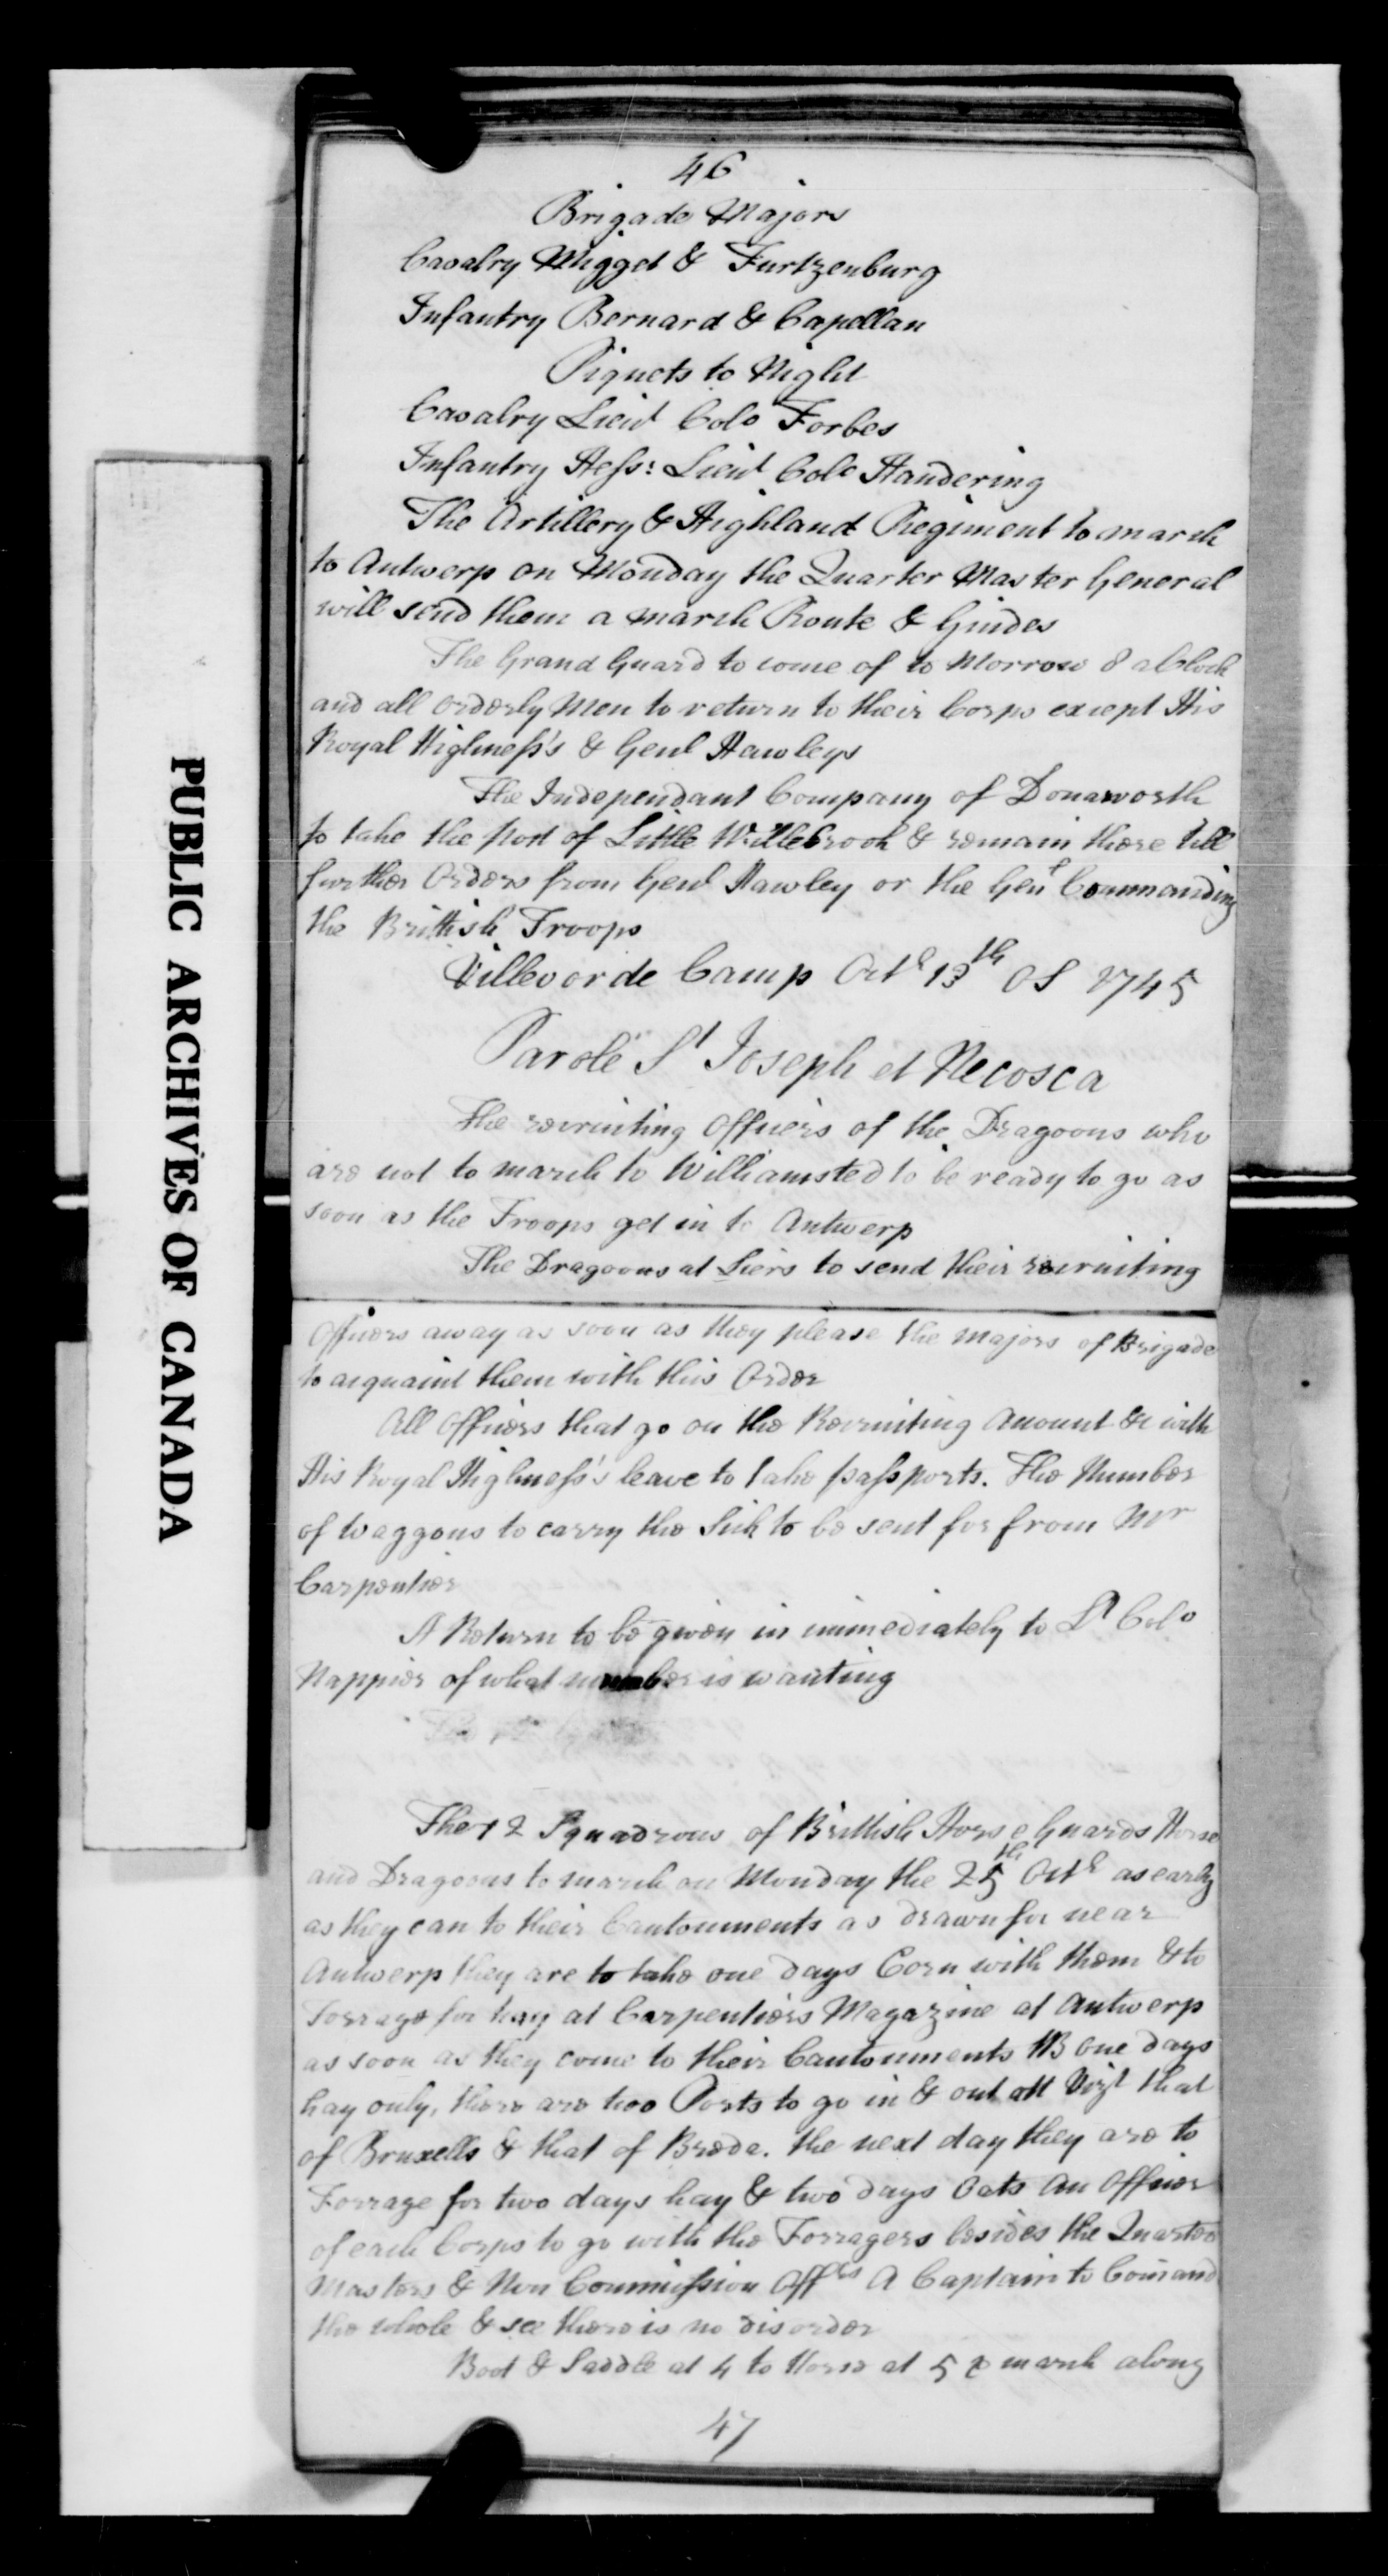 46
Brigade Majors
Cavalry Migget & Furtzenburg
Infantry Bernard & Capellan
Piquets to Night
Cavalry Lieut Colo Forbes
Infantry Hess: Lieut Colo Handering
The Artillery & Highland Regiment to march
to Antwerp on Monday the Quarter Master General
will send them a march Route & Guides
The Grand Guard to come of to Morrow 8 a Clock
and all orderly Men to return to their Corps except His
Royal Highness's & Genl Hawleys
The Independant Company of Donaworth
to take the post of Little Willebrook & remain there till
further Orders from Genl Hawley or the Genl Commanding
the Brittish Troops
Villevorde Camp Octr 13th OS 1745
Parole St Joseph et Necosca
The recruiting Officers of the Dragoons who
are not to march to Williamsted to be ready to go as
soon as the Troops get in to Antwerp
The Dragoons at Liers to send their recruiting
Officers away as soon as they please the majors of Brigade
to acquaint them with this Order
All Officers that go on the Recruiting Account &c with
His Royal Highness's leave to take passports. The Number
of Waggons to carry the Sick to be sent for from Mr
Carpentier
A Return to be given in immediately to Lt Colo
Nappier of what number is wanting
The 12 Squadrons of Brittish Horse Guards Horse
and Dragoons to march on Monday the 25th Octr as early
as they can to their Cantonments as drawn for near
Antwerp they are to take one days Corn with them & to
Forrage for hay at Carpentiers Magazine at Antwerp
as soon as they come to their Cantonments NB one days
hay only, there are two Ports to go in & out att Vizt that
of Bruxells & that of Breda. the next day they are to
Forrage for two days hay & two days Oats An Officer
of each Corps to go with the Forragers besides the Quarter
Masters & Non Commission Offrs A Captain to Comand
the whole & see there is no disorder
Boot & Saddle at 4 to Horse at 5 & march along
47
PUBLIC ARCHIVES OF CANADA